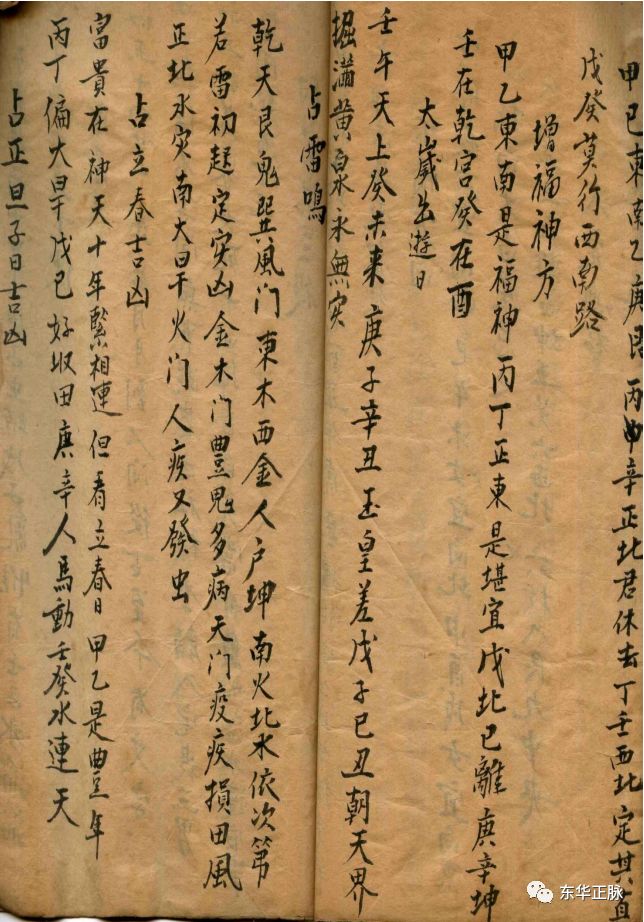 甲己東南乙庚艮丙辛正北君休去丁壬西北定其直
戊癸莫行西南路
增福神方
甲乙東南是福神丙丁正東是堪宜戊北己離庚辛坤
壬在乾宮癸在酉
太歲出遊日
壬午天上癸未來庚子辛丑玉皇差戊子己丑朝天界
掘滿黃泉永無災
占雷鳴
乾天艮鬼巽風门東木西金人户坤南火北水依次第
若雷初起定災凶金木门豊鬼多病天门疫疾損田風
正北水灾南大旱火门人疾又發虫
占立春吉凶
富貴在神天十年緊相連但看立春日甲乙是豊年
丙丁偏大旱戊己好收田庚辛人馬動壬癸水連天
占正旦子日吉凶
东华正脉